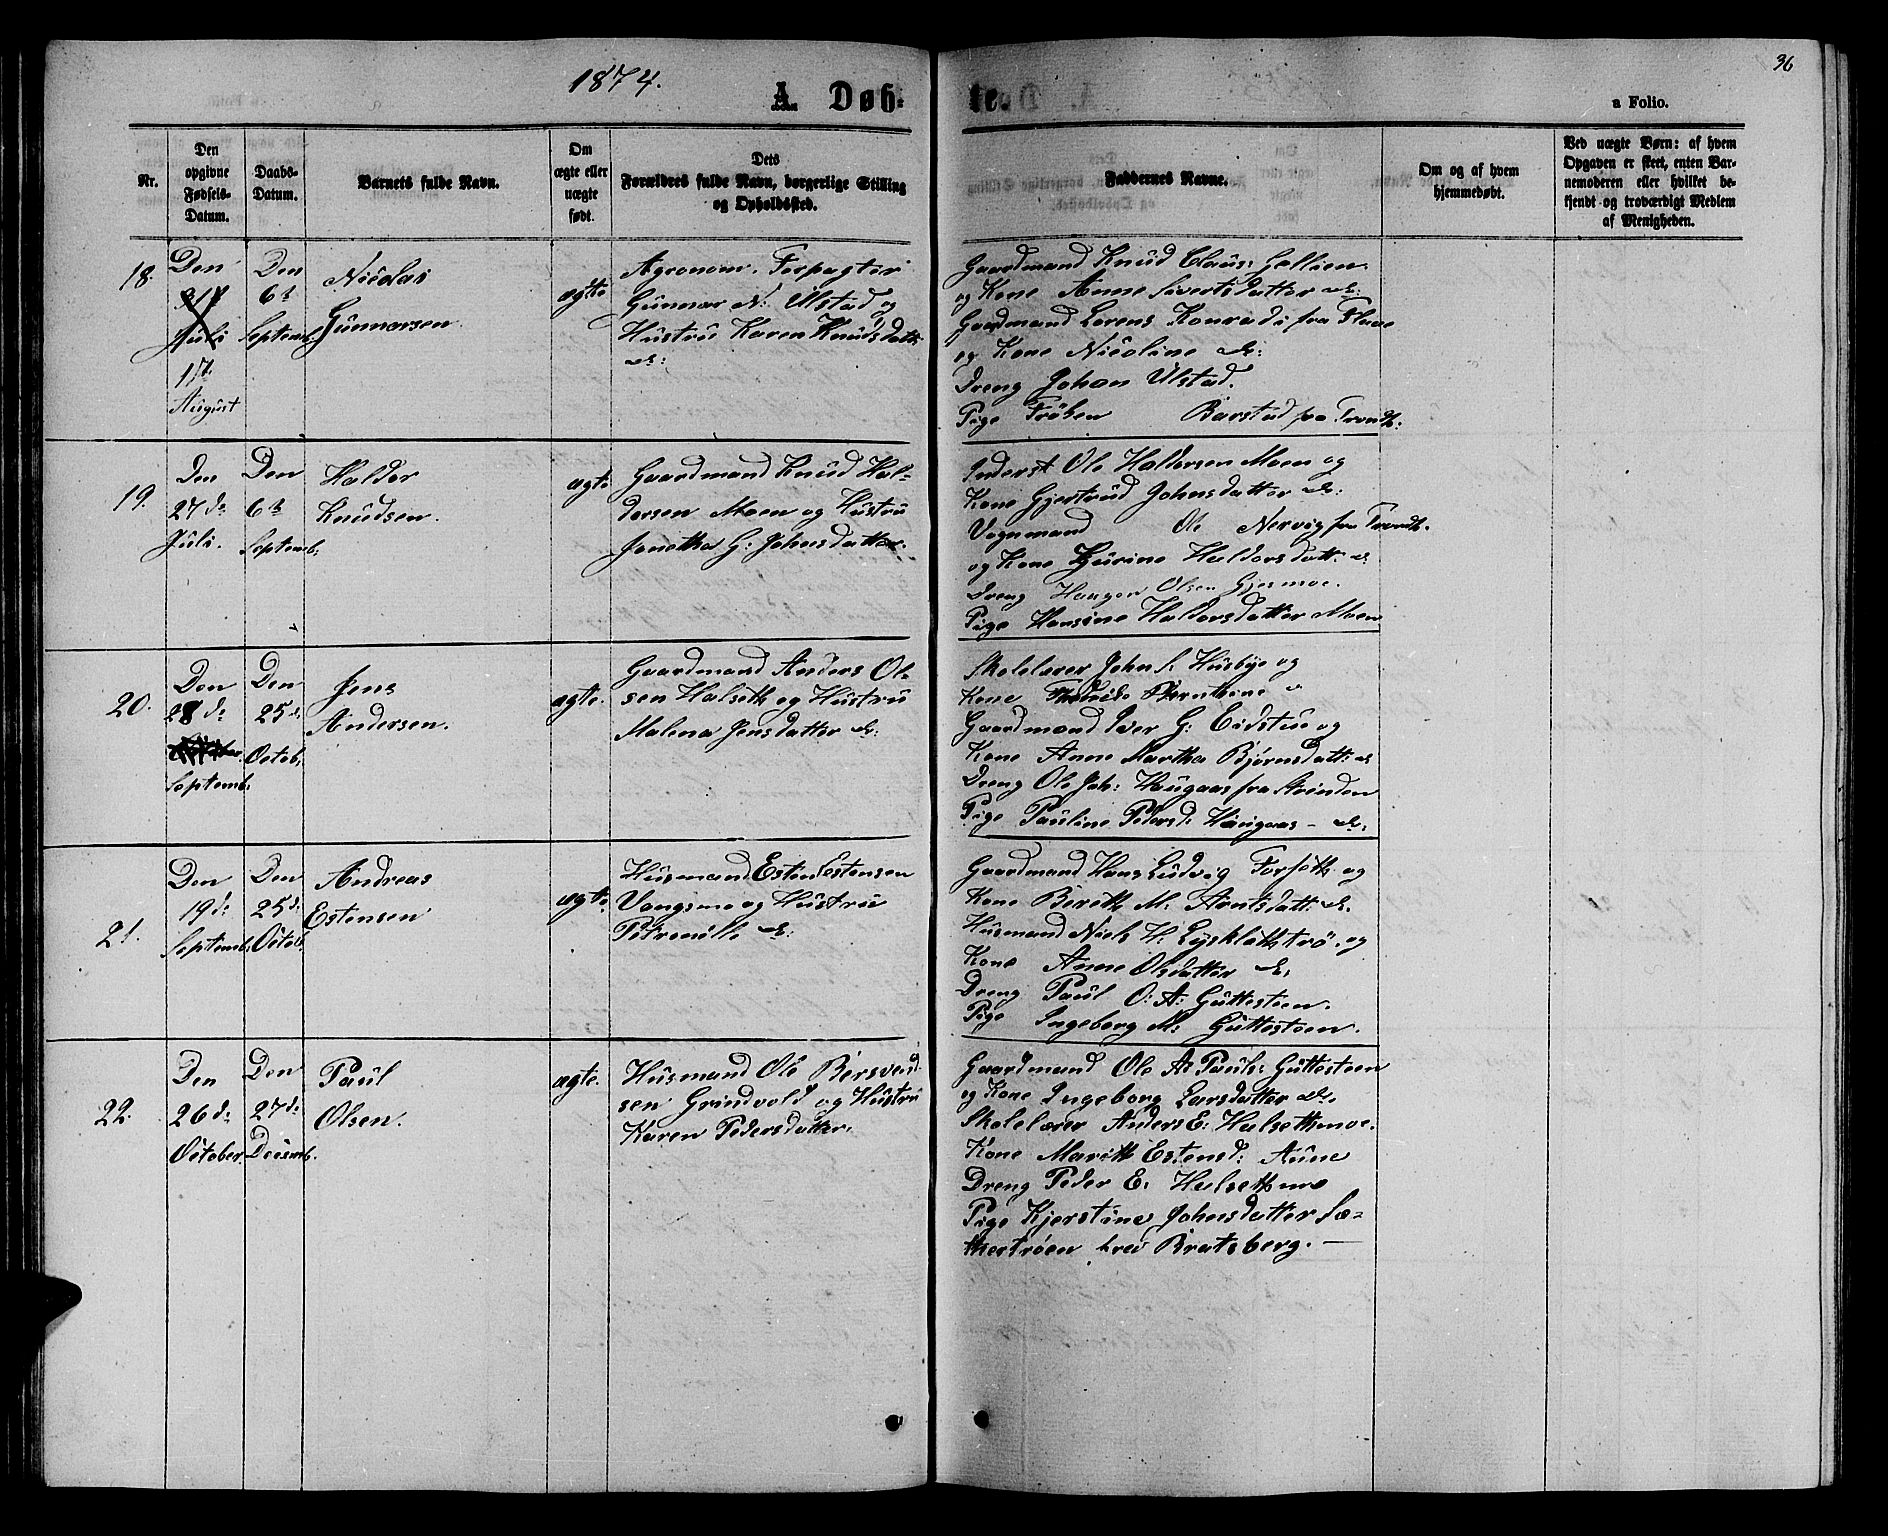 1874.
A. Døb-
te.
36
a Folio.
Nr.
Den
opgivne
Fødsels-
Datum.
Daabs-
Datum.
Barnets fulde Navn.
Om
ægte eller
uægte
født.
Dets
Forældres fulde Navn, borgerlige Stilling
og Opholdssted.
Faddernes Navne.
Om og af hvem
hjemmedøbt.
Ved uægte Børn: af hvem
Opgaven er skeet, enten Bar-
nemoderen eller hvilket be-
kjendt og troværdigt Medlem
af Menigheden.
18.
Den
Juli
17d
August
Den
6t
Septemb:
Nicolas
Gunnarsen
ægte
Agronom. Forpagter
Gunnar N: Ulstad og
Hustru Karen Knudsdatt:
do:
Gaardmand Knud Claus: Hallien
og Kone Anne Sivertsdatter do:
Gaardmand Lorens Konradi fra Flaae
og Kone Nicoline do:
Dreng Johan Ulstad.
Pige Frøken Barstad fra Trondh:
19.
Den
27de
Juli.
Den
6t
Septemb:
Haldor
Knudsen.
ægte
Gaardmand Knud Hal-
dorsen Moen og Hustru
Jonetha G: Johnsdatter.
Inderst Ole Haldorsen Moen og
Kone Gjertrud Johnsdatter do:
Vognmand Ole Nervig fra Trondh.
og Kone Gurine Haldorsdatt: do
Dreng Haagen Olsen Gjesmoe.
Pige Hansine Haldorsdatter Moen
20.
Den
28de
Septemb:
Den
25d:
Octob:
Jens
Andersen.
ægte.
Gaardmand Anders Ol-
sen Halseth og Hustru
Malena Jensdatter do:
Skolelærer John S: Husbye og
Kone Bernthine
Gaardmand Iver G: Eidstue og
Kone Anne Martha Bjørnsdatt: do
Dreng Ole Joh: Haugaas fra Strinden
Pige Pauline Pedersd: Haugaas - do:
21.
Den
19d:
Septemb:
Den
25d:
Octob.
Andreas
Estensen
ægte.
Husmand Esten Estensen
Vangsmo og Hustru
Petronille do:
Gaardmand Hans Ludvig Forseth og
Kone Bereth M: Arntsdatt: do.
Husmand Niels H: Lysklethtrø. og
Kone Anne Olsdatter do:
Dreng Paul O: A: Guttesteen.
Pige Ingeborg M: Guttesteen.
22.
Den
26d:
October.
Den
27d:
Decemb.
Paul
Olsen.
ægte.
Husmand Ole Bersvend-
sen Grindvold og Hustru
Karen Pedersdatter.
Gaardmand Ole A: Pauls: Guttesteen
og Kone Ingeborg Larsdatter do.
Skolelærer Anders E: Halsethmoe.
Kone Marith Estensd: Aune
Dreng Peder E: Halsethmo
Pige Kjerstine Johnsdatter Sæ-
therøen ved Bratsberg.